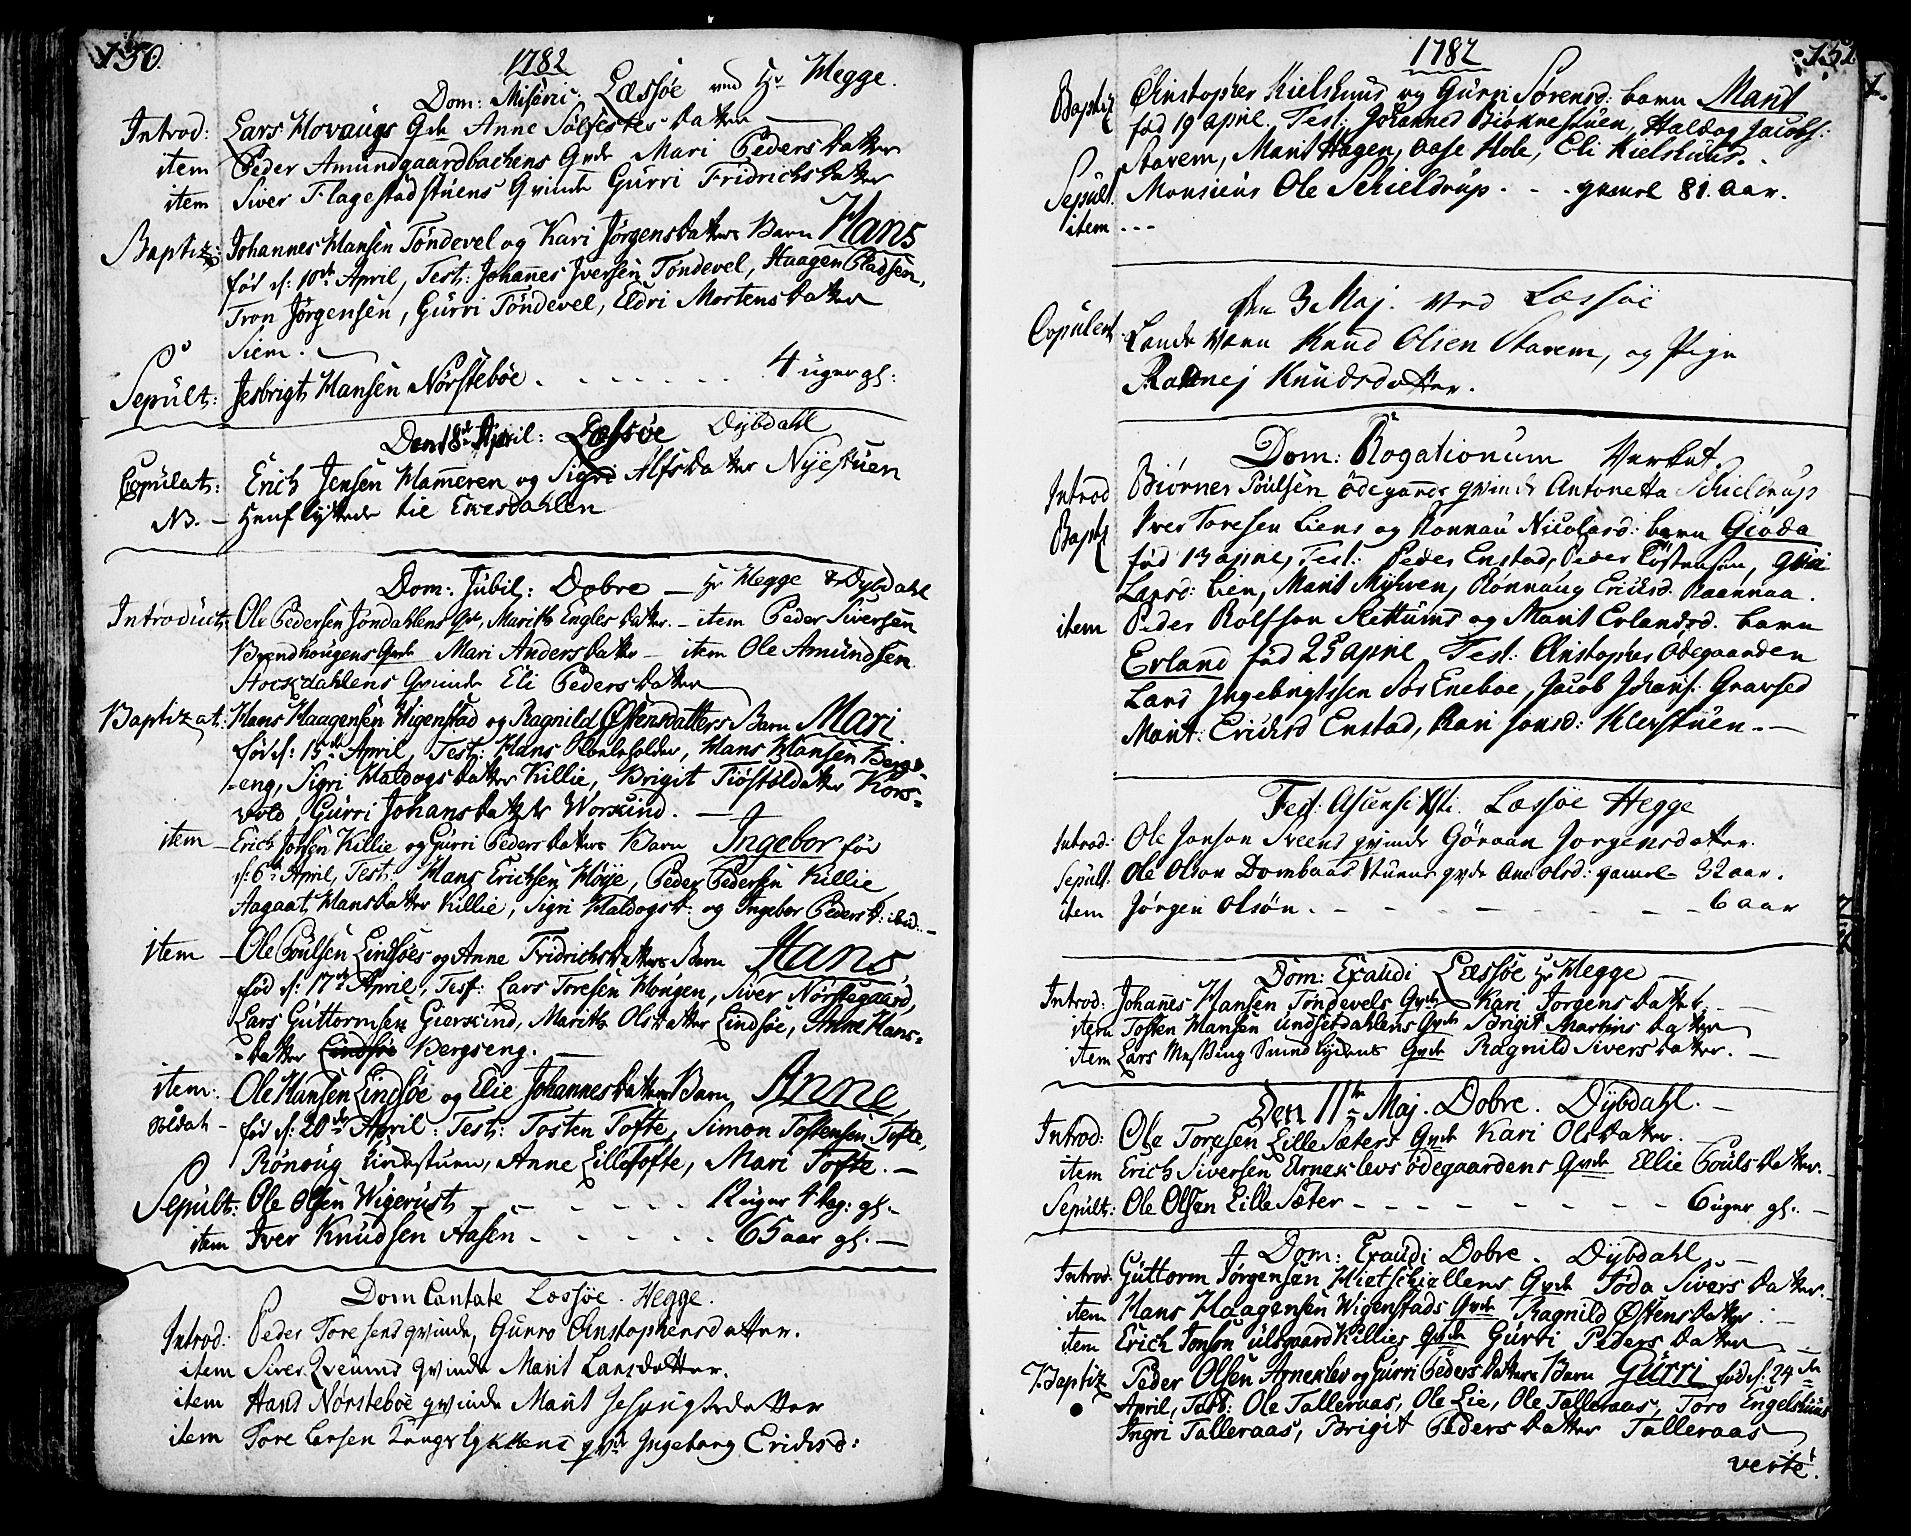 150.
1782
Dom: Miseric: Læssøe ved Hr Hegge.
Introd: Lars Hovaugs Qvde Anne Sølfestes Datter
item Peder Amundgaardbachens Qvde Mari Peders Datter
item Siver Flagestadstuens Qvinde Gurri Fridrichs Datter
Baptiz: Johannes Hansen Tøndevel og Kari Jørgensdatters Barn Hans
fød d: 10de April, Test: Johannes Iversen Tøndevel, Haagen Pladsen,
Tron Jørgensen, Gurri Tøndevel, Eldri Mortens Datter
Siem.
Sepult: Jesbrigt Hansen Nørstebøe . . . . . . . 4 uger gl:
Den 18de April: Læssøe Dybdahl
Copulat: Erich Jensen Hameren og Sigri Alfs Datter Nyestuen
NB. - Henflyttede til Exesdahlen
Dom: Jubil: Dobre - Hr Hegge & Dybdahl
Introduct: Ole Pedersen Jøndahlens Qve, Marith Engles Datter. - item Peder Siversen
Brendhougens Qvde Mari Anders Datter - item Ole Amundsen
Stockdahlens Qvinde Eli Peders Datter
Baptizat: Hans Haagensen Wigenstad og Ragnild Østensdatters Barn Mari
fød d: 15de April, Test: Hans Skoeleholder, Hans Hansen Bergs-
-eng, Sigri Haldogs Datter Killie, Brigit Tiøstoldatter Kors-
vold, Gurri Johans Datter Workind.
item - Erich Jonsen Killie og Gurri Peders Datters Barn Ingebor fød
d: 6te April, Test: Hans Erichsen Høye, Peder Pedersen Killie,
Aagaat Hans Datter Killie, Sigri Haldogs D: og Ingebor Peders D: ibid. -
item - Ole Poulsen Lindsøes og Anne Fridrichs Datters Barn Hans,
fød d: 17de April, Test: Lars Toresen Hougen, Siver Nørstegaard,
Lars Guttormsen Gierkind, Marithe Ols Datter Lindsøe, Anne Hans-
-Datter Lindsøe Bergseng.
item: Ole Hansen Lindsøe og Elie Johannes Datters Barn Anne,
Soldat - fød d: 20de April: Test: Tosten Tofte, Simon Tostensen Tofte,
Rønoug Lindstuen, Anne Lilletofte, Mari Tofte. -
Sepult: Ole Olsen Wigerust - - - - - 12 uger 4 dag: gl. -
item Iver Knudsen Aasen - - - - - 65 aar gl. -
Dom Cantate Læssøe. Hegge.
Introd: Peder Toresens qvinde, Gunro Christophersdatter.
item Siver qvinde Marit Larsdatter.
item Hans Nørstebøe qvinde Marit Jesprigtsdatter
item Tore Larsen qvde Ingeborg Erichsd:
1782
151
Baptiz Christopher Kielshuus og Gurri Sørensd: barn Marit
fød 19 april. Test: Johannes Birknestuen, Haldog Jacobs:
Stavem, Marit Hagen, Aase Hole, Eli Kielshuus. .
Sepult. Monsieur Ole Schieldrup. - - gamel 81. Aar.
item - - -
Den 3 Maj. ved Læssøe
Copuleret Landevern Knud Olsen Stavem, og Pige
Ragnej Knudsdatter.
Dom: Rogationum Verket.
Introd Biørner Poulsen Ødegards qvinde Antonetta Schieldrup
Baptz Iver Toresen Liens og Ronnau Nicolasd: barn Giøda
fød 13 april, Test: Peder Enstad, Peder Tøstensen, Guri
Larsd: Lien, Marit Mylven, Rønnaug Ericksd. Raannaa.
item Peder Rolfson Slettums og Marit Erlandsd. barn
Erland fød 25 april Test: Christopher Ødegaarden
Lars Ingebrigtsen Sør Eneboe, Jacob Johans: Gravsed
Marit Ericksd Enstad, Kari Jonsd: Klevstuen. -
Fest: Ascensi Xsti. Læssøe Hegge
Introd: Ole Jonson Sveens qvinde Gøraan Jorgensdatter.
Sepult. Ole Olson Dombaas Stuens qvde Ane Olsd: gamel - 32 aar.
item Jørgen Olsøn. - - - - - - - - 6 aar
Dom: Exaudi Læssøe Hr Hegge
Introd: Johannes Hansen Tøndevels Qvde Kari Jørgens Datter. -
item Tosten Hansen Undsetdahlens Qvde Brigit Martins Datter
item Lars Messing Sundlydens Qvde Ragnild Sivers Datter. -
Den 11te Maj. Dobre. Dybdahl. -
Introd: Ole Toresen Lille Sæters Qvde Kari Ols Datter.
item Erich Siversen Arneklevs ødegaardens Qvde Ellie Pouls Datter.
Sepult: Ole Olsen Lille Sæter - - - - - - - 6 uger gl. -
Dom: Exaudi Dobre. Dybdahl. -
Introd. Guttorm Jørgensen Hietschiellens Qvde Jøda Sivers Datter.
item Hans Haagensen Wigenstads Qvde Ragnild Østens Datter
item Erich Jonson Ulsgaard Killies Qvde Gurri Peders Datter
Baptiz Peder Olsen Arneklev og Gurri Peders Datters Barn Gurri fød d: 24de
April, Test: Ole Talleraas, Ole Lie, Ole Talleraas, Toro Engelshuus
Ingri Talleraas, Brigit Peders Datter Talleraas
verte!